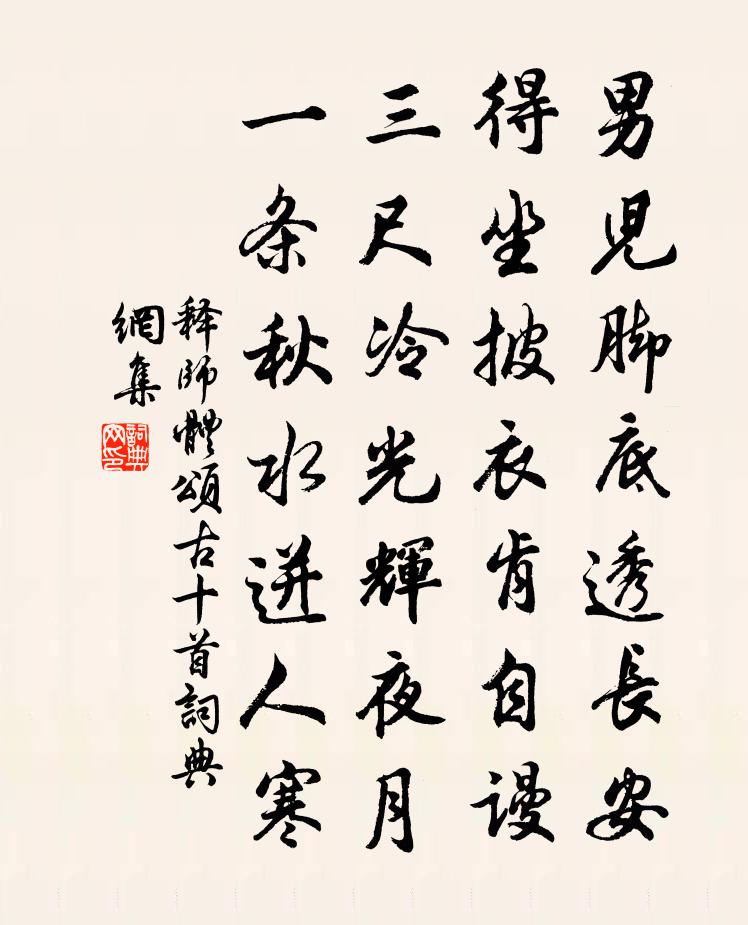 男児脚底透長安
得坐披衣肯自謾
三尺冷光輝夜月
一条秋水迸人寒
释師體頌古十首詞典
網集
詞典
网印